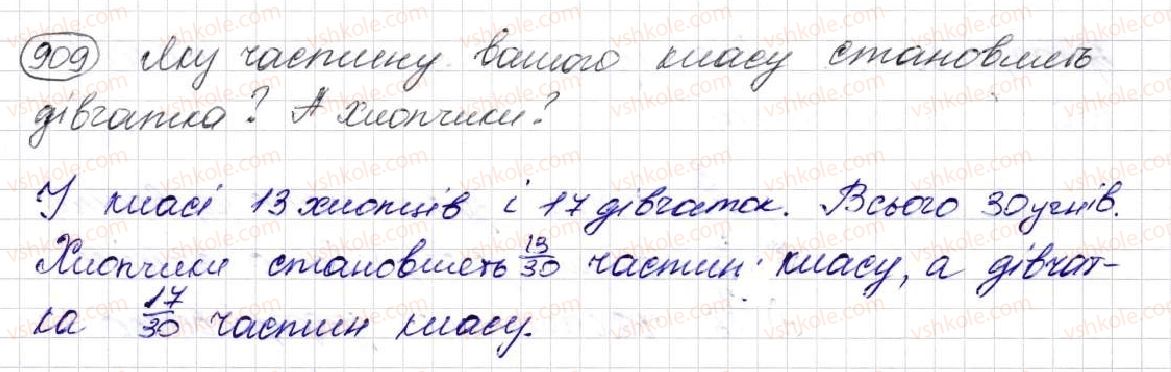 909 Яку частину вашого класу становлять
дівчатка? А хлопчики?
У класі 13 хлопців і 17 дівчаток. Всього 30 учнів.
Хлопчики становлять 13/30 частин класу, а дівчат-
ка 17/30 частин класу.